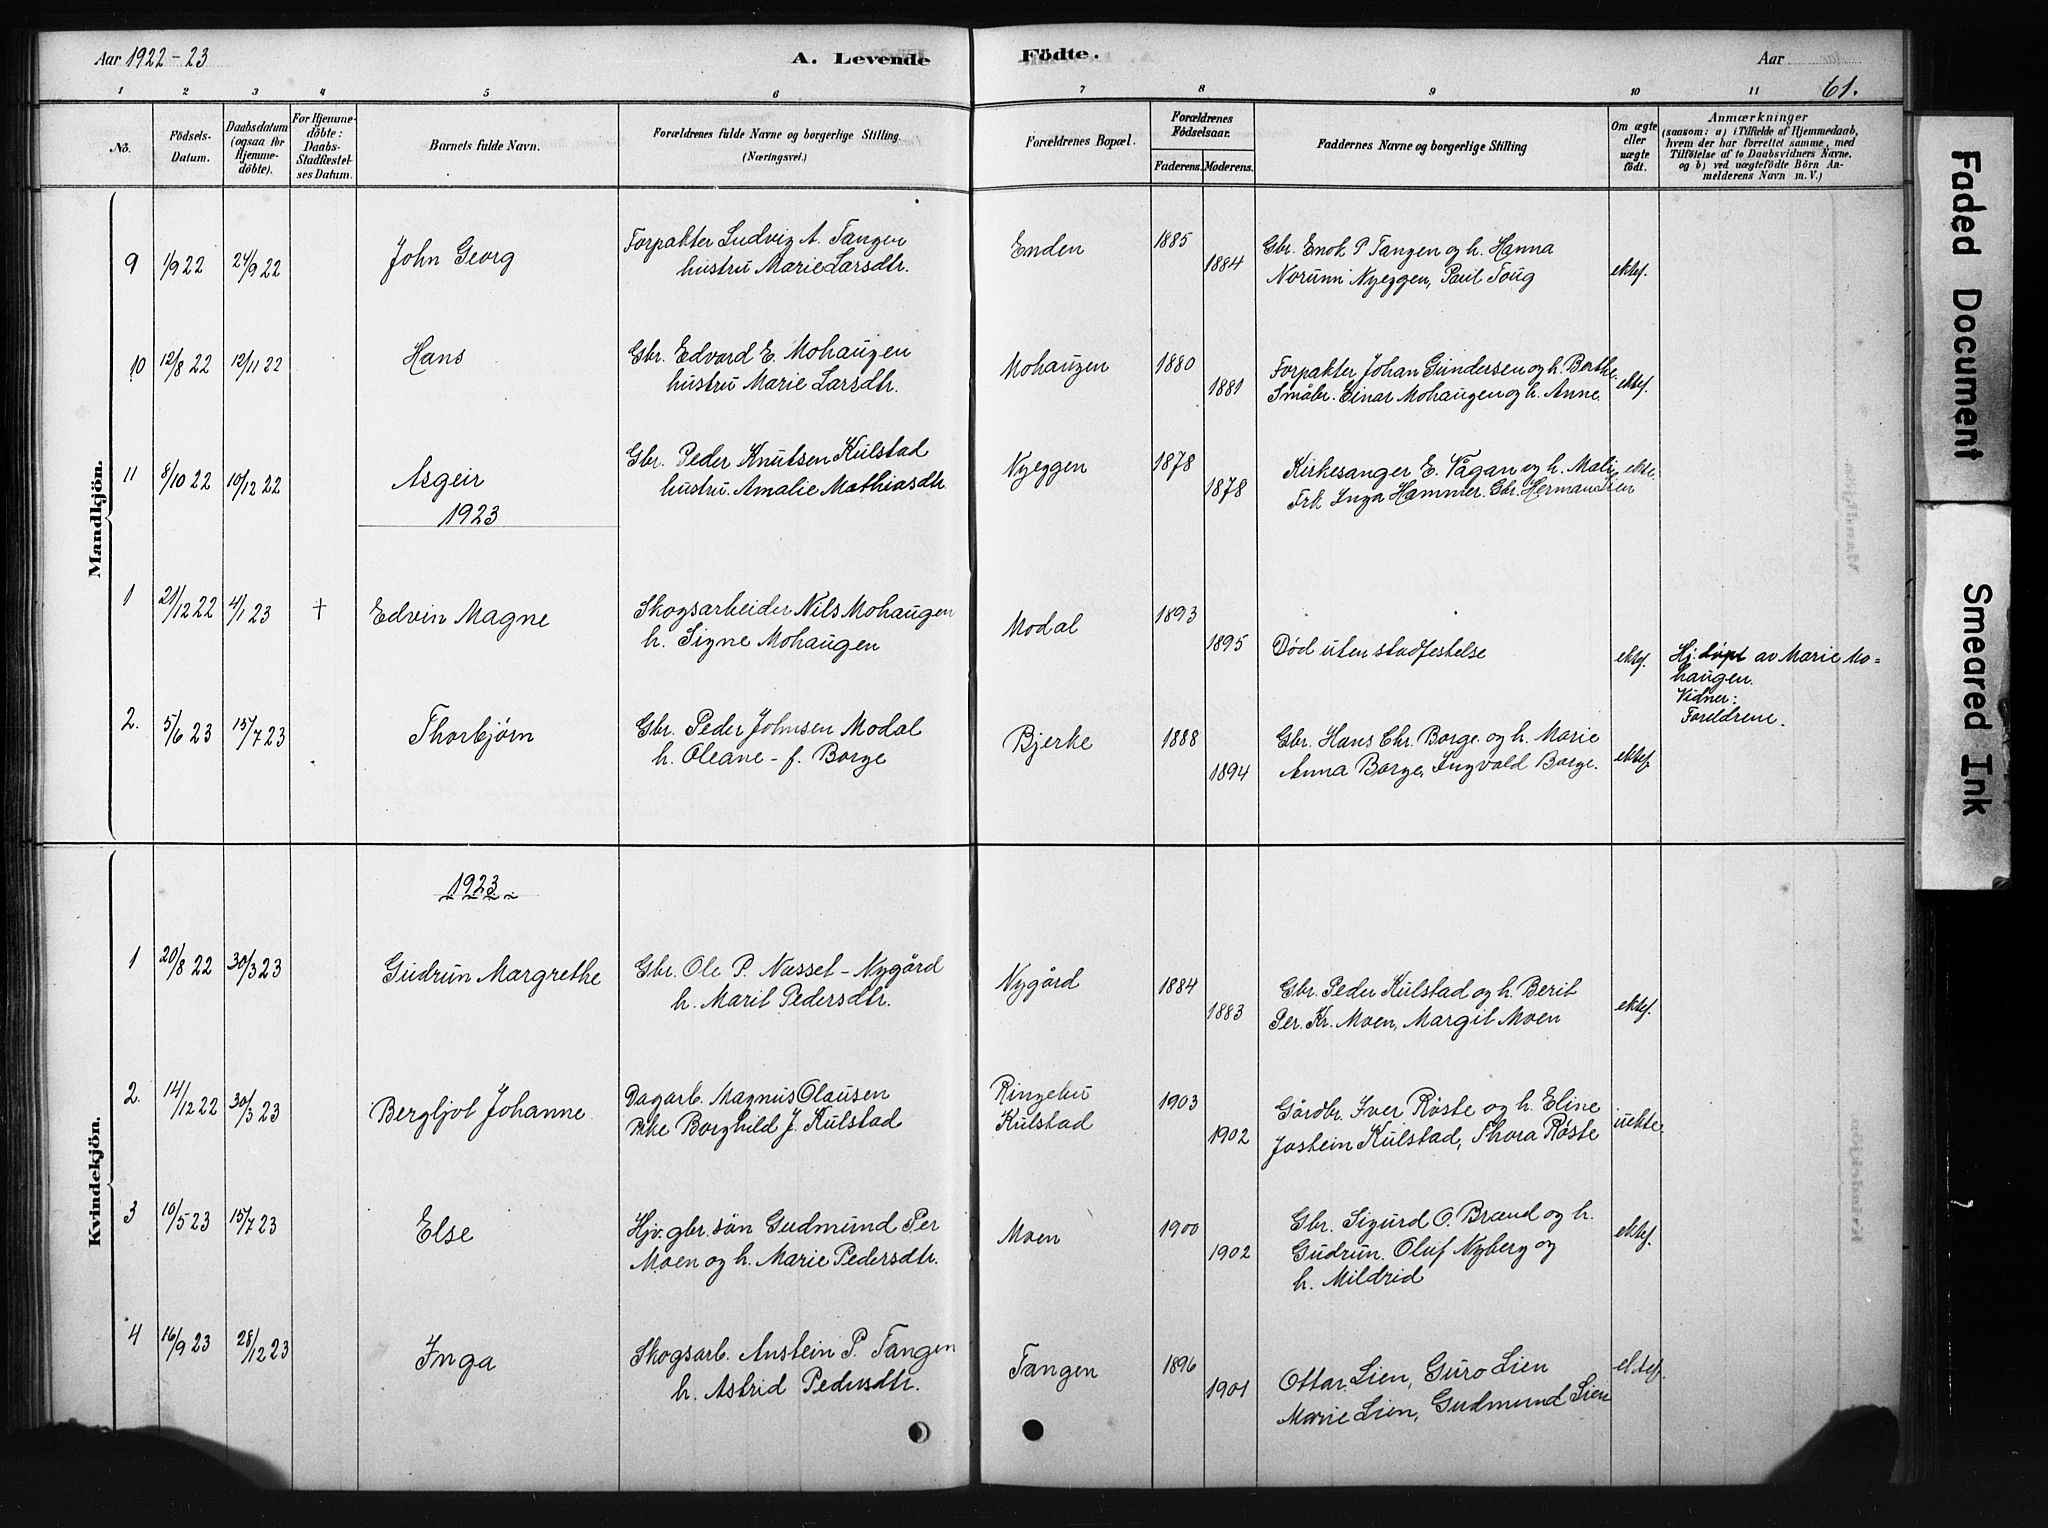 Aar 1922-23
A. Levende Födte.
Aar
61.
1 2 3 4 5 6 7 8 9 10 11
No.
Födsels-Datum.
Daabsdatum (ogsaa for Hjemme-döbte).
For Hjemme-döbte: Daabs-Stadfæstel-ses Datum.
Barnets fulde Navn.
Forældrenes fulde Navne og borgerlige Stilling
(Næringsvei.)
Forældrenes Bopæl.
Forældrenes Födselsaar.
Faderens. Moderens.
Faddernes Navne og borgerlige Stilling
Om ægte eller uægte födt.
Anmærkninger
(saasom: a) i Tilfælde af Hjemmedaab, hvem der har forrettet samme, med Tilföielse af to Daabsvidners Navne, og b) ved uægtefödte Börn An-melderens Navn m. V.)
Mandkjön.
9 1/9 22 24/9 22 John Georg Forpakter Ludvig A. Tangen Enden 1885 Gbr. Enok P Tangen og h. Hanna
hustru Marie Larsdtr. 1884 Norunn Nyeggen, Paul Toug ektef.
10 12/8 22 12/11 22 Hans Gbr. Edvard E. Mohaugen Mohaugen 1880 Forpakter Johan Gundersen og h. Berthe
hustru Marie Larsdtr. 1881 Småbr. Einar Mohaugen og h. Anne. ektef.
11 8/10 22 10/12 22 Asgeir Gbr. Peder Knutsen Kulstad Nyeggen 1878 Kirkesanger E. Vågan og h. Mali ekte.
hustru Amalie Mathiasdtr. 1878 Frk Inga Hammer. Gbr. Herman Lien
1923
1 21/12 22 4/1 23 † Edvin Magne Skogsarbeider Nils Mohaugen Modal 1893
h. Signe Mohaugen 1895 Død uten stadfestelse ektef. Hj. døpt av Marie Mo=
haugen.
Vidner:
Foreldrene.
2. 5/6 23 15/7 23 Thorbjørn Gbr. Peder Johnsen Modal Bjerke 1888 Gbr. Hans Chr. Borge og h. Marie
h. Oleane - f. Borge 1894 Anna Borge, Ingvald Borge. ektef.
Kvindekjön.
1923
1 20/8 22 30/3 23 Gudrun Margrethe Gbr. Ole P. Næsset - Nygård Nygård 1884 Gbr. Peder Kulstad og h. Berit
h. Marit Pedersdtr. 1883 Per Kr. Moen, Margit Moen ektef.
2. 14/12 22 30/3 23 Bergljot Johanne Dagarb. Magnus Olausen Ringebu 1903 Gårdbr. Iver Røste og h. Eline
Pike Borghild J. Kulstad Kulstad 1902 Jostein Kulstad, Thora Røste uekte.
3 10/5 23 15/7 23 Else Hjv. gbr. sön Gudmund Per Moen 1900 Gbr. Sigurd O. Brænd og h. ektef.
Moen og h. Marie Pedersdtr. 1902 Gudrun. Oluf Nyberg og
h. Mildrid
4 16/9 23 28/12 23 Inga Skogsarb. Anstein P. Tangen Tangen 1896 Ottar Lien, Guro Lien ektef.
h. Astrid Pedersdtr. 1901 Marie Lien, Gudmund Lien
Faded Document
Smeared Ink